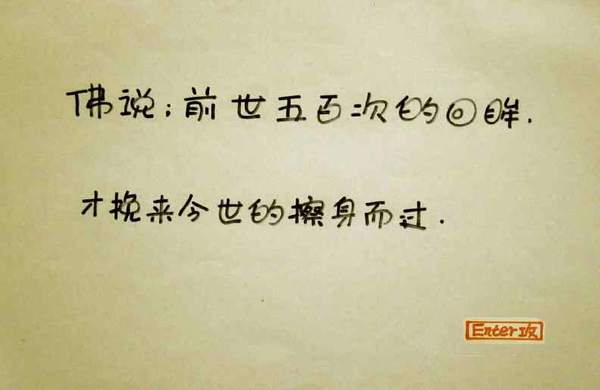 佛说：前世五百次的回眸.
才挽来今世的擦身而过.
Enter